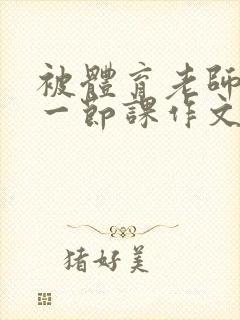 被體育老師
一節課作文
猪好美